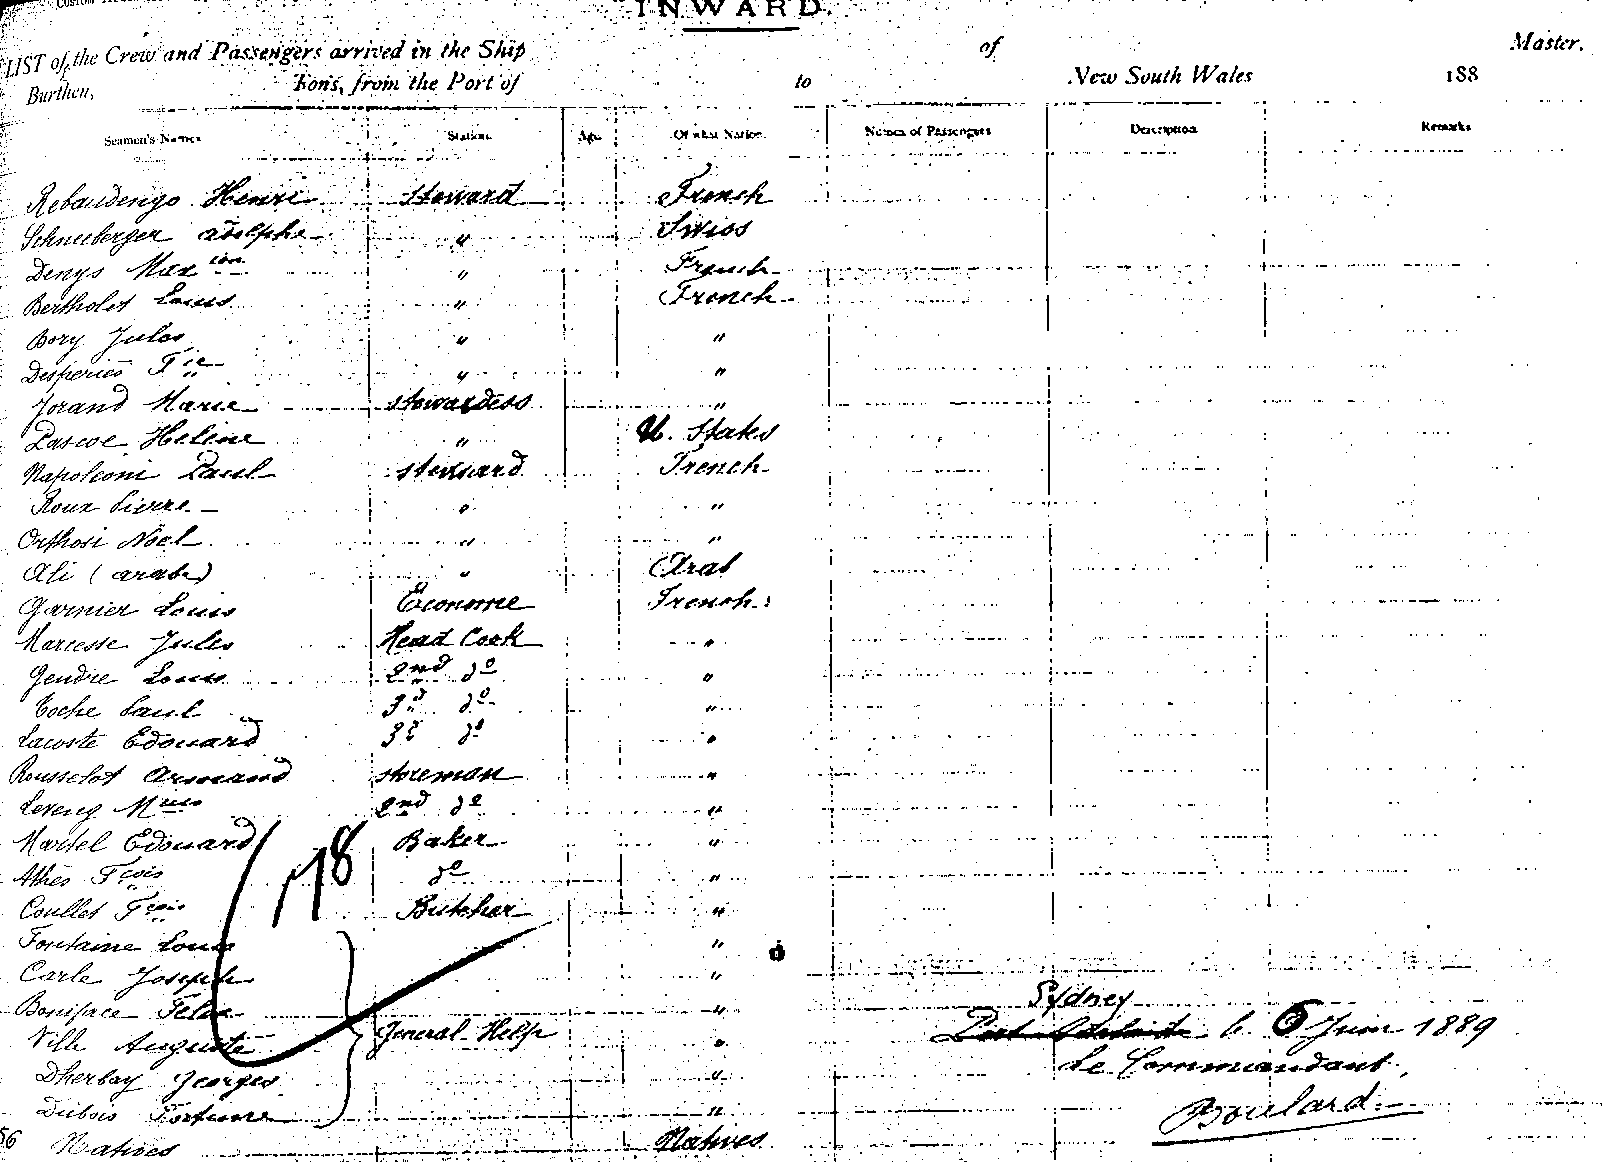 INWARD.
LIST of the Crew and Passengers arrived in the Ship of Master.
Burthen, Tons, from the Port of to New South Wales 188
Seamen's Names Station Age Of what Nation Names of Passengers Description Remarks
Rebaudengo Henri Steward French
Schneeberger adolphe " Swiss
Denys Max " French
Bertholet Louis " French
Bory Jules " "
Desperies " "
Jorand Marie stewardess "
Pascoe Helene " U. States
Napoleoni Paul steward French
Roux Pierre " "
Orthosi Noel " "
Ali (arabe) " Arab
Garnier Louis Econome French
Marcesse Jules Head Cook "
Gendre Louis 2nd do "
Coche Paul 3d do "
Lacoste Edouard 3d do "
Rousselot Armand storeman "
2nd do "
Martel Edouard Baker "
Athés Fçois do "
Coullet Fçois Butcher "
178
Fontaine Louis "
Carle Joseph "
Boniface Felix "
Ville Auguste General Help "
Dherbay Georges "
Dubois Fortune "
56 Natives Natives
Sydney
Port Adelaide le 6 Juin 1889
Le Commandant
Boulard